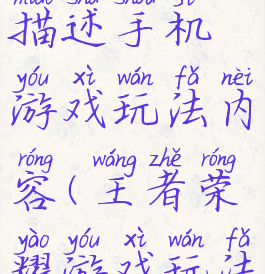 miáo shù shǒu jī
描述手机
yóu xì wán fǎ nèi
游戏玩法内
róng wáng zhě róng
容(王者荣
yào yóu xì wán fǎ
耀游戏玩法